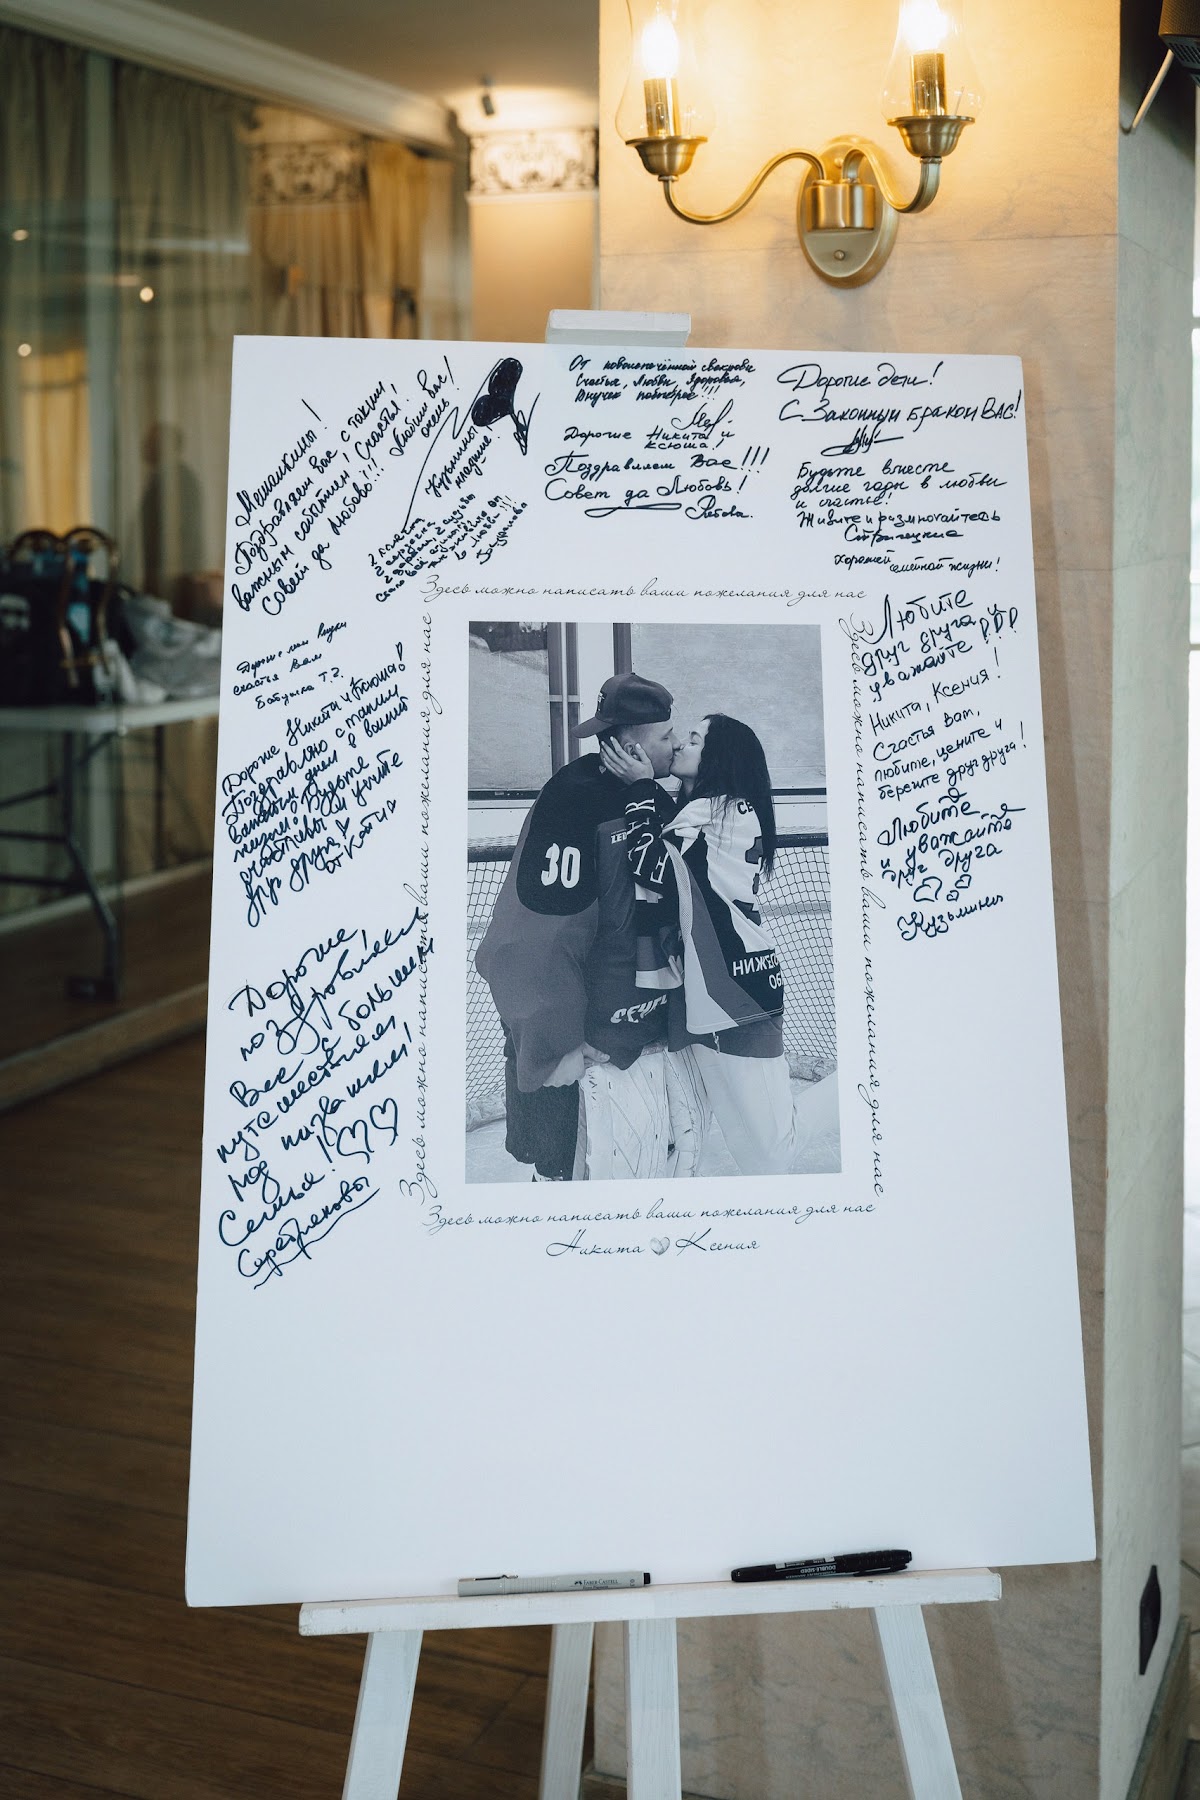 Мешалкины!
Поздравляем вас с таким
важным событием! Счастья!
Совет да любовь!!! Любим вас!
очень
Кузьмины
младшие.
От новоиспечённой свекрови
Счастья, Любви, Здоровья,
Внучек побыстрее!!!
Дорогие Никита и
Ксюша!
Поздравляем Вас!!!
Совет да Любовь!
Дорогие дети!
С Законным браком ВАС!
Будьте вместе
долгие годы в любви
и счастье!
Живите и размножайтесь
Хорошей
семейной жизни!
Здесь можно написать ваши пожелания для нас
Дорогие мои внуки
счастья вам
Бабушка Т.Г.
Дорогие Никита и Ксюша!
Поздравляю с таким
важным днём в вашей
жизни! Будьте
счастливы и учите
друг друга
от Кати
Дорогие,
поздравляем
Вас с большим
путешествием
под названием
Семья!
Серебряковы
Любите
друг друга и
уважайте!!!
Никита, Ксения!
Счастья вам,
любите, цените и
берегите друг друга!
Любите
уважайте
друг друга
Кузьмины
Здесь можно написать ваши пожелания для нас
Здесь можно написать ваши пожелания для нас
30
НИЖ
Здесь можно написать ваши пожелания для нас
Никита Ксения
FABER-CASTELL
DOUBLE-SIDED